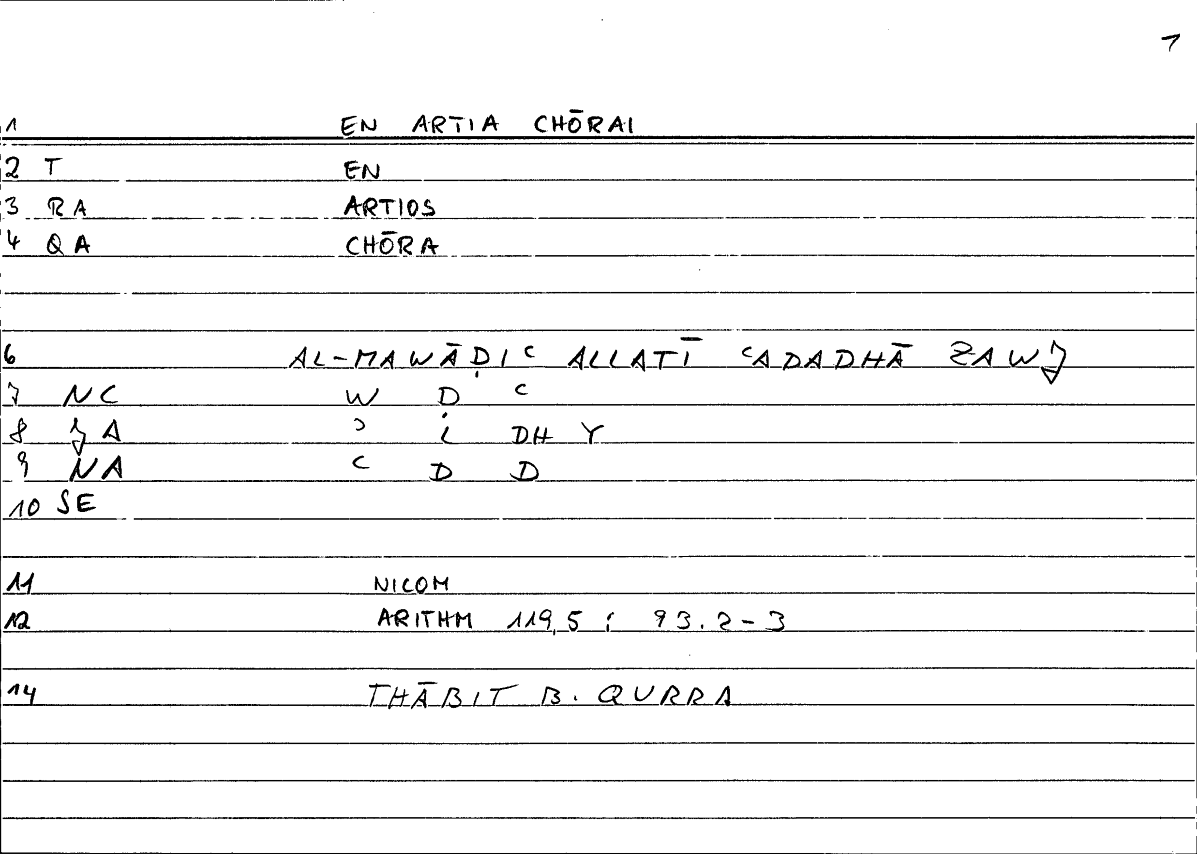 1
1 EN ARTIA CHŌRAI
2 T EN
3 RA ARTIOS
4 QA CHŌRA
6 AL-MAWĀḌIʿ ALLATĪ ʿADADHĀ ZAWJ
7 NC W Ḍ ʿ
8 JA ʾ L DH Y
9 NA ʿ D D
10 SE
11 NICOM
12 ARITHM 119,5 ; 93.2-3
14 THĀBIT B. QURRA